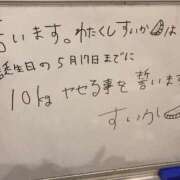 言います。わたくしすいか🍉は
誕生日の5月17日までに
10kg ヤセる事を誓います
すいか🍉